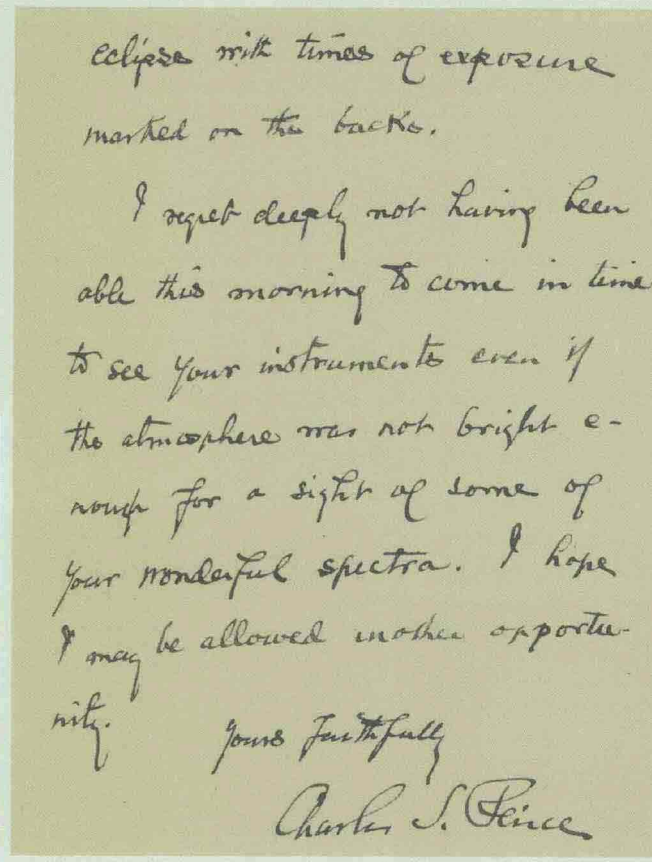 eclipse with times of exposure
marked on the backs.
I regret deeply not having been
able this morning to come in time
to see your instruments even if
the atmosphere was not bright e-
nough for a sight of some of
your wonderful spectra. I hope
I may be allowed another opportu-
nity.
Yours faithfully
Charles S. Peirce